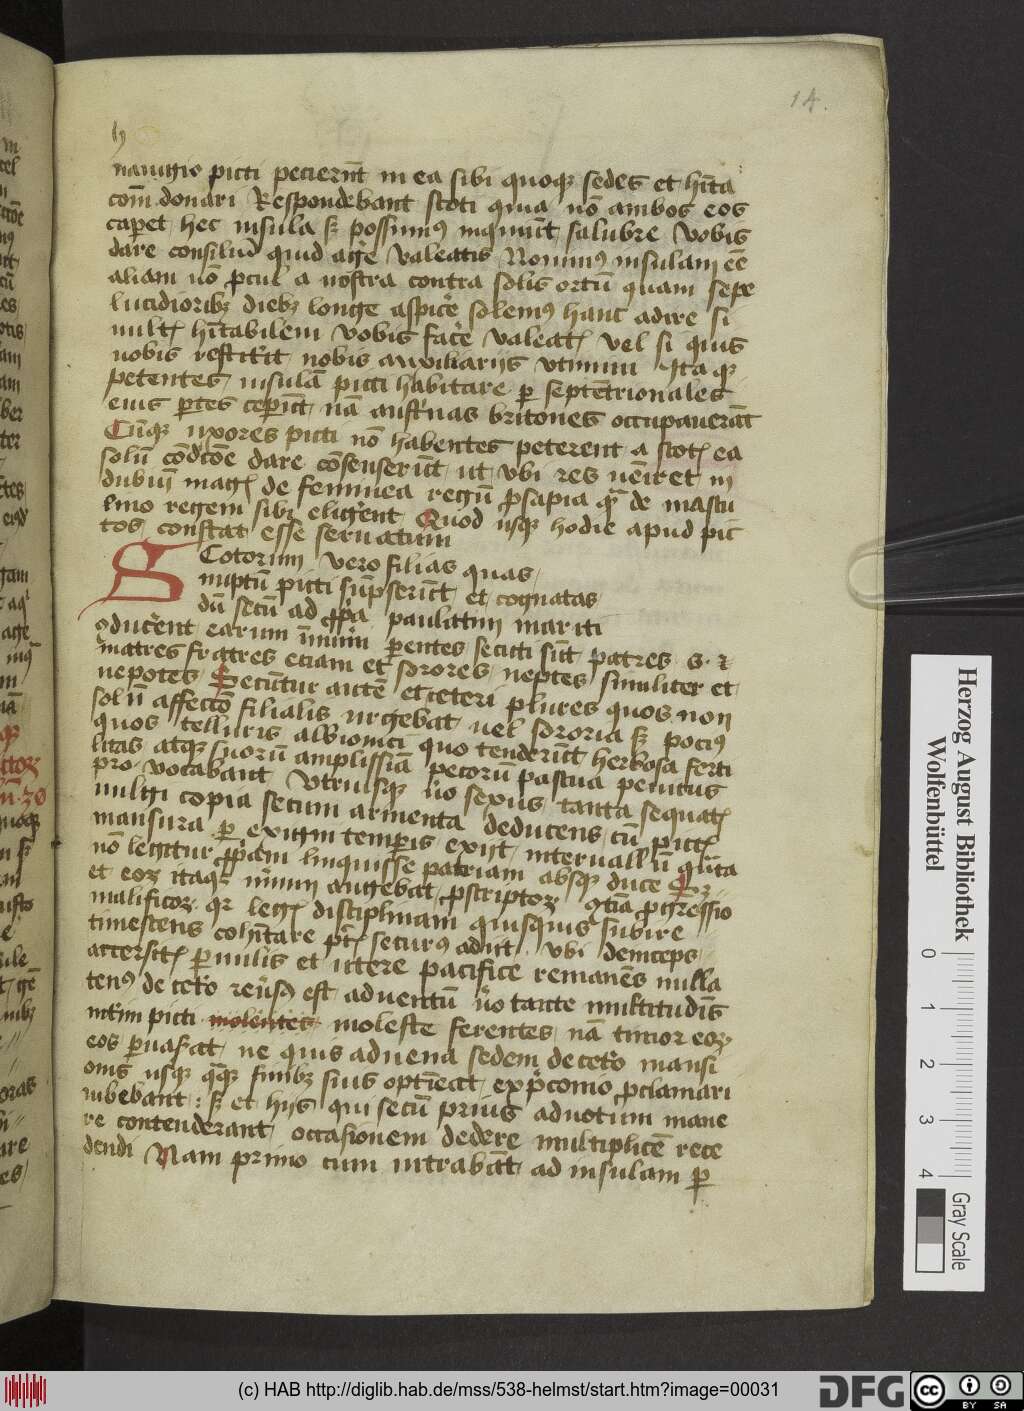 14.
nauigio picti pecierūt in ea sibi quoqꝫ sedes et hītā
com̄ donari Respondebant scoti quia nō ambos eos
caperet hec insula sꝫ possumꝰ inquiūt salubre vobis
dare consiliū quid age̓ valeatis Nouimꝰ insulam eē
aliam nō ꝓcul a nostra contra solis ortū quam sepe
lucidioribꝫ diebꝫ longe aspice̓ solemꝰ hanc adire si
vultꝭ hītabilem vobis face̓ valeatꝭ vel si quis
vobis restite̓it nobis auxiliarijs vtimini Itaqꝫ
petentes insulā picti habitare ꝑ septētrionales
eius ꝑtes cepiūt nā austr̓nas britones occupauerāt
Cūqꝫ uxores picti nō habentes peterent a scotꝭ ea
solū cōdicōe dare cōsenserūt ut vbi res ueīret in
dubiū magꝭ de feminea regū ꝓsapia qᷓ de mascu
lino regem sibi elige̓ent Quod usqꝫ hodie apud pic
tos constat esse seruatum
Scotorum vero filias quas
nuptū picti sūpserūt et cognatas
dū secū ad ꝓpͥa paulatim mariti
ꝯduce̓ent earum īnumͥi parentes secuti sūt patres s. ⁊
matres fratres etiam et sorores neptes similiter et
nepotes Secūtur autē et ceteri plures quos non
solū affectō filialis urgebat vel sororia sꝫ pociꝰ
quos telluris albionici quo tenderūt herbosa ferti
litas atqꝫ suorū amplissīa pecorū pascua penitus
pro vocabant Vtriusqꝫ ūo sexus tanta sequatꝭ
uulgi copia secum armenta deducens cū pictꝭ
mansura ꝑ exigui temporis exijt interuallū qūta
nō legitur ꝓpͥam linquisse patriam absqꝫ duce
et eoꝝ itaqꝫ nūm̄ augebat ꝓscriptoꝝ ꝯtīa ꝓgressio
malificoꝝ qr̄ legꝭ disciplinam quisquis subire
timescens cohītare pꝭt securꝰ adijt vbi deinceps
accersitꝭ ꝑuulis et uxore pacifice remanēs nulla
tenꝰ de cete̓o reu̓sꝰ est aduentū ūo tante multitudīs
inte̓im picti molentes moleste ferentes nā timor eoꝝ
eos ꝑuaserat ne quis aduena sedem de cete̓o mansi
onis usqꝫ qᷓqꝫ finibꝫ suis optīeat ex p̄como ꝓclamari
iubebant : sꝫ et hijs qui secū prius aduotum mane
re contenderant occasionem dedere multiplicē rece
dendi Nam primo cum intrabāt ad insulam ꝑ
Herzog August Bibliothek
Wolfenbüttel
0 1 2 3 4
Gray Scale
(c) HAB http://diglib.hab.de/mss/538-helmst/start.htm?image=00031
DFG
cc BY SA